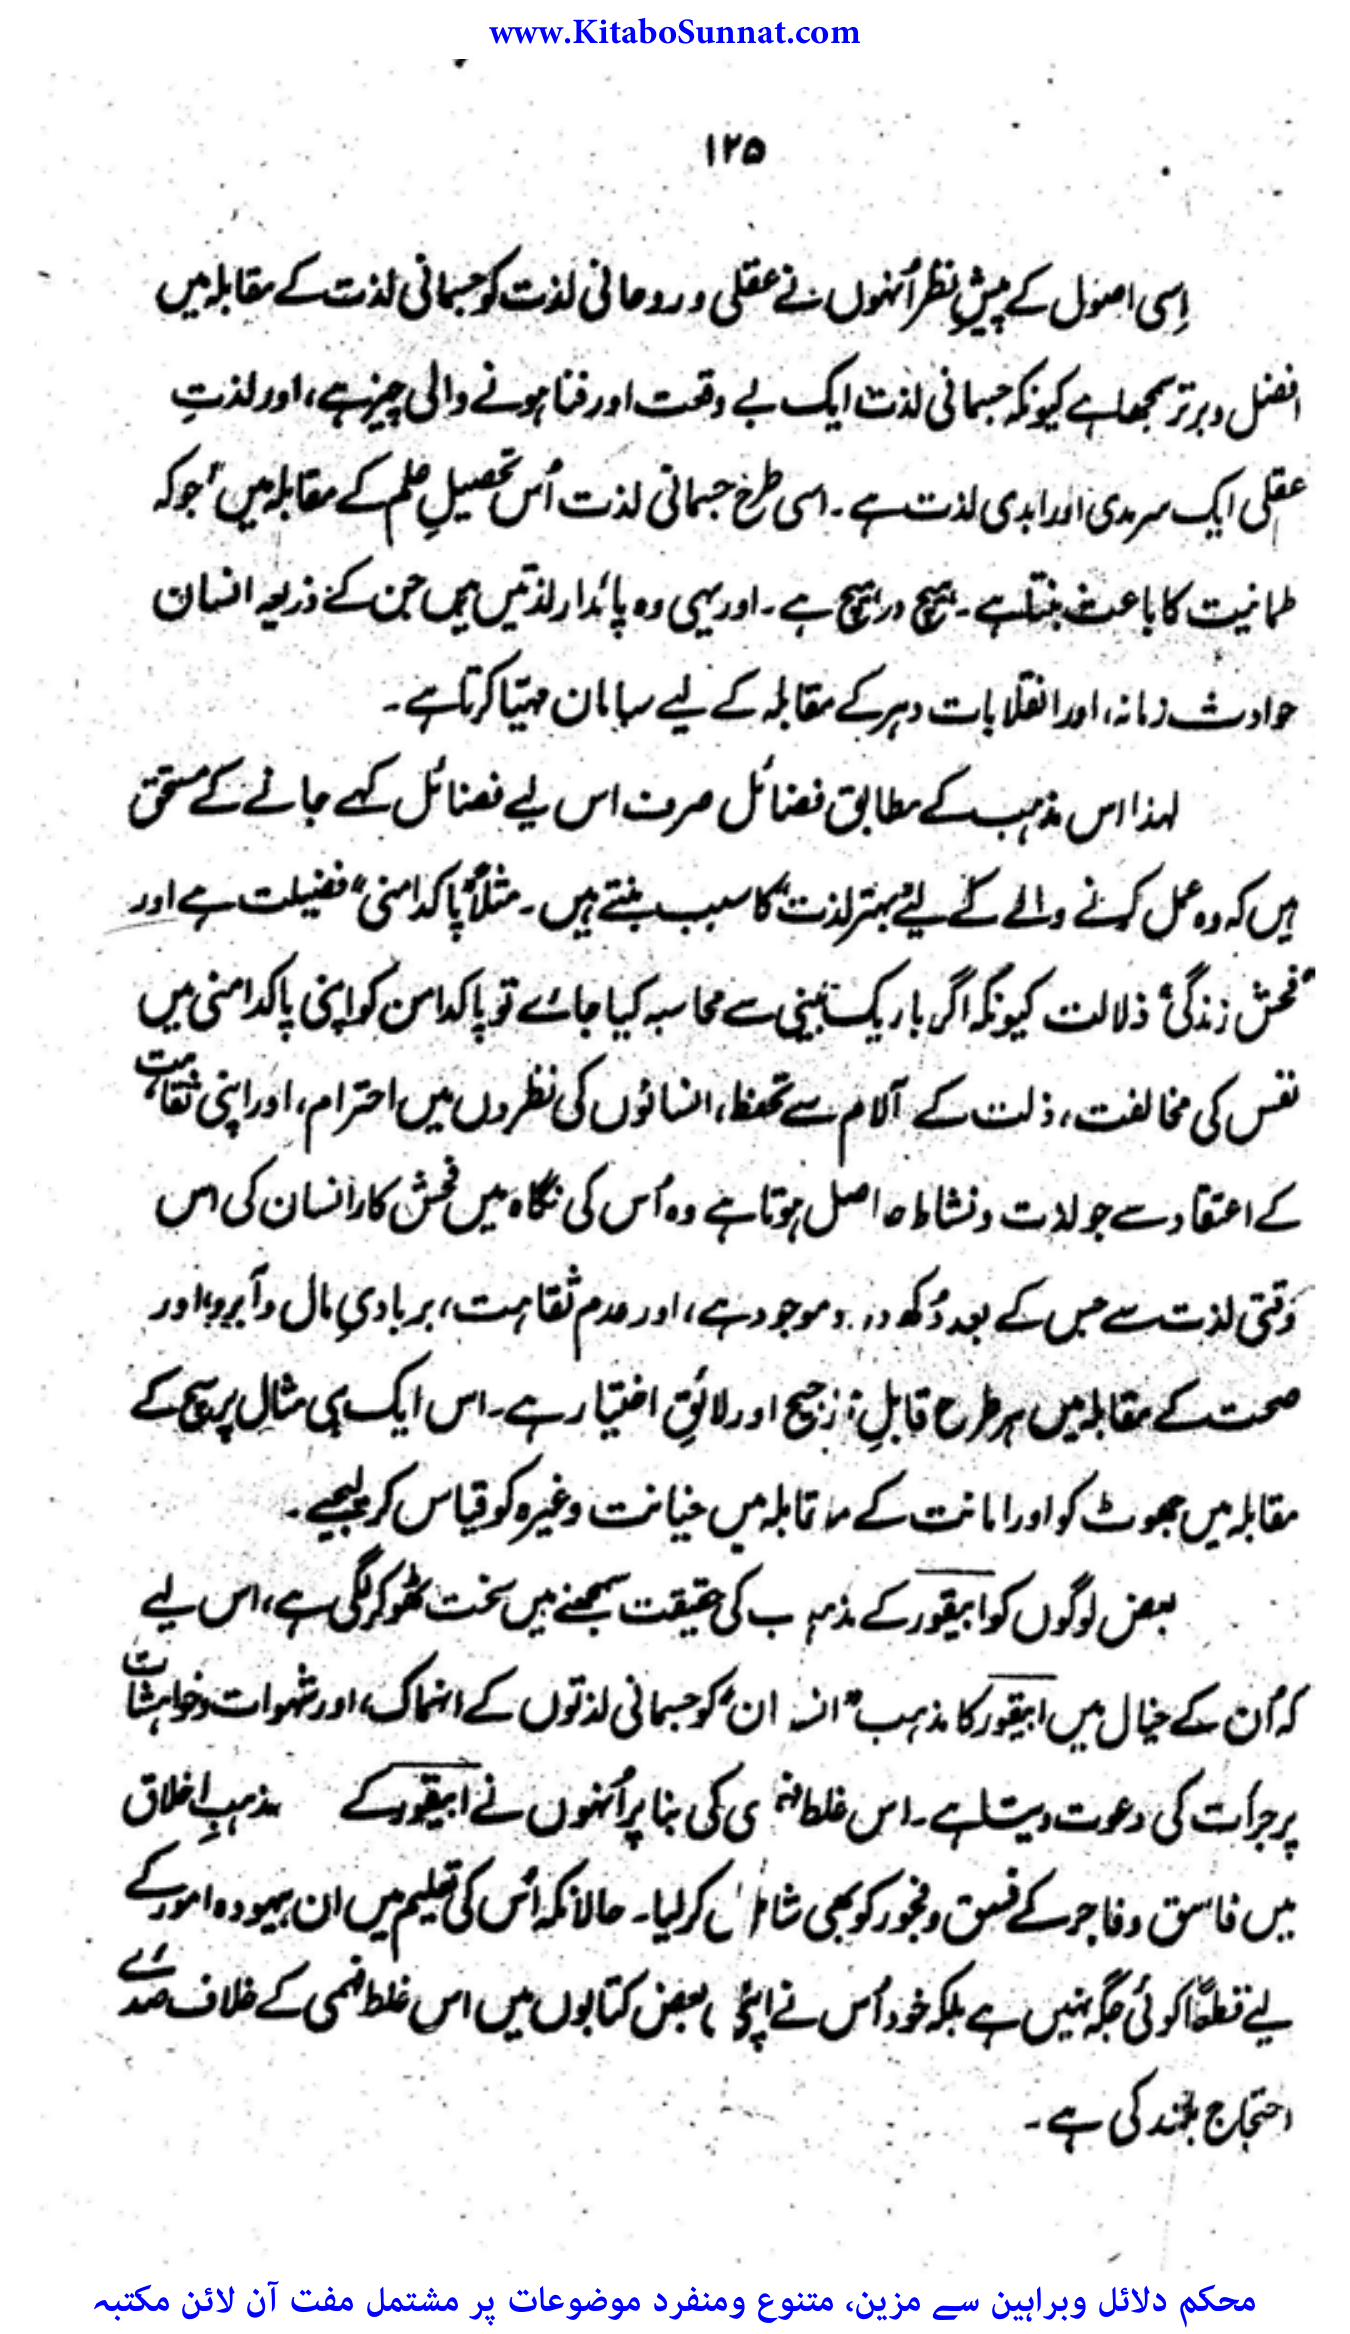 www.KitaboSunnat.com
۱۲۵
اِسی اصول کے پیشِ نظر اُنہوں نے عقلی و روحانی لذت کو جسمانی لذت کے مقابلہ میں
افضل و برتر سمجھا ہے کیونکہ جسمانی لذت ایک بے وقعت اور فنا ہونے والی چیز ہے، اور لذتِ
عقلی ایک سرمدی اور ابدی لذت ہے۔ اسی طرح جسمانی لذت اُس تحصیلِ علم کے مقابلہ میں "جو کہ
طمانیت کا باعث بنتا ہے۔ ہیچ در ہیچ ہے۔ اور یہی وہ پائدار لذتیں ہیں جن کے ذریعہ انسان
حوادث زمانہ، اور انقلابات دہر کے مقابلہ کے لیے سامان مہیّا کرتا ہے۔
لہذا اس مذہب کے مطابق فضائل صرف اس لیے فضائل کہے جانے کے مستحق
ہیں کہ وہ عمل کرنے والے کے لیے "بہتر لذت" کا سبب بنتے ہیں۔ مثلاً "پاکدامنی" فضیلت ہے اور
"فحش زندگی" ذلالت کیونکہ اگر باریک بینی سے محاسبہ کیا جائے تو پاکدامن کو اپنی پاکدامنی میں
نفس کی مخالفت، ذلت کے آلام سے تحفظ، انسانوں کی نظروں میں احترام، اور اپنی ثقاہت
کے اعتقاد سے جو لذت و نشاط حاصل ہوتا ہے وہ اُس کی نگاہ میں فحش کار انسان کی اس
وقتی لذت سے جس کے بعد دُکھ درد موجود ہے، اور عدم ثقاہت، بربادیِ مال و آبرو، اور
صحت کے مقابلہ میں ہر طرح قابلِ ترجیح اور لائقِ اختیار ہے۔ اس ایک ہی مثال پر سچ کے
مقابلہ میں جھوٹ کو اور امانت کے مقابلہ میں خیانت وغیرہ کو قیاس کر لیجیے۔
بعض لوگوں کو ابیقور کے مذہب کی حقیقت سمجھنے میں سخت ٹھوکر لگی ہے، اس لیے
کہ اُن کے خیال میں ابیقور کا مذہب "انسان" کو جسمانی لذتوں کے انہماک، اور شہوات و خواہشات
پر جرأت کی دعوت دیتا ہے۔ اس غلط فہمی کی بنا پر اُنہوں نے ابیقور کے مذہبِ اخلاق
میں فاسق و فاجر کے فسق و فجور کو بھی شامل کر لیا۔ حالانکہ اُس کی تعلیم میں ان بیہودہ امور کے
لیے قطعاً کوئی جگہ نہیں ہے بلکہ خود اُس نے اپنی بعض کتابوں میں اس غلط فہمی کے خلاف صدائے
احتجاج بلند کی ہے۔
محکم دلائل وبراہین سے مزین، متنوع ومنفرد موضوعات پر مشتمل مفت آن لائن مکتبہ